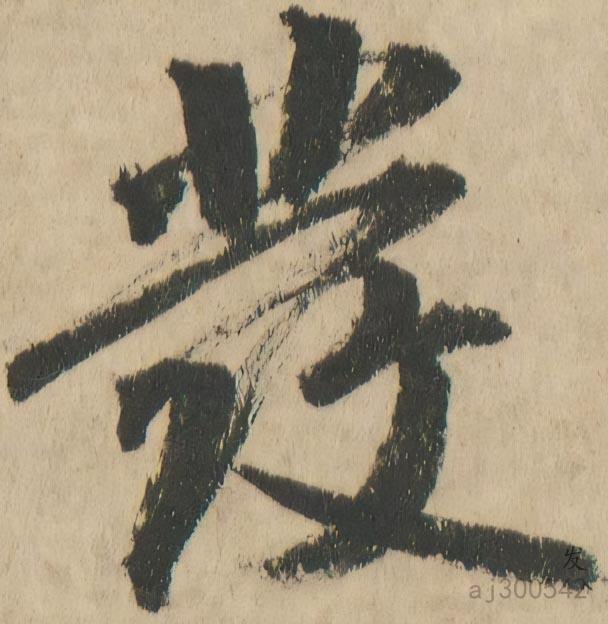 發
发
aj300542